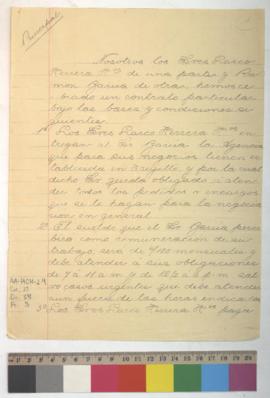 Principal
Nosotros los Sres Larco
Herrera Hnos de una parte y Ra-
mon Garcia de otra, hemos ce-
brado un contrato particular
bajo las bases y condiciones si-
guientes.
1ª Los Sres Larco Herrera Hnos en-
tregan al Sr Garcia la Agencia
que para sus negocios tienen es-
tablecida en Trujillo, y por la cual
dicho Sr queda obligado a aten-
der todos los pedidos o encargos
que se le hagan para la negocia-
cion en general.
2ª El sueldo que el Sr Garcia perci-
bira como remuneracion de su
trabajo, sera de mensuales y
debe atender a sus obligaciones
de 7 a 11 a m y de a p. m. sal-
vo casos urgentes que debe atender
aun fuera de las horas indicadas
3ª Los Sres Larco Herrera Hnos paga